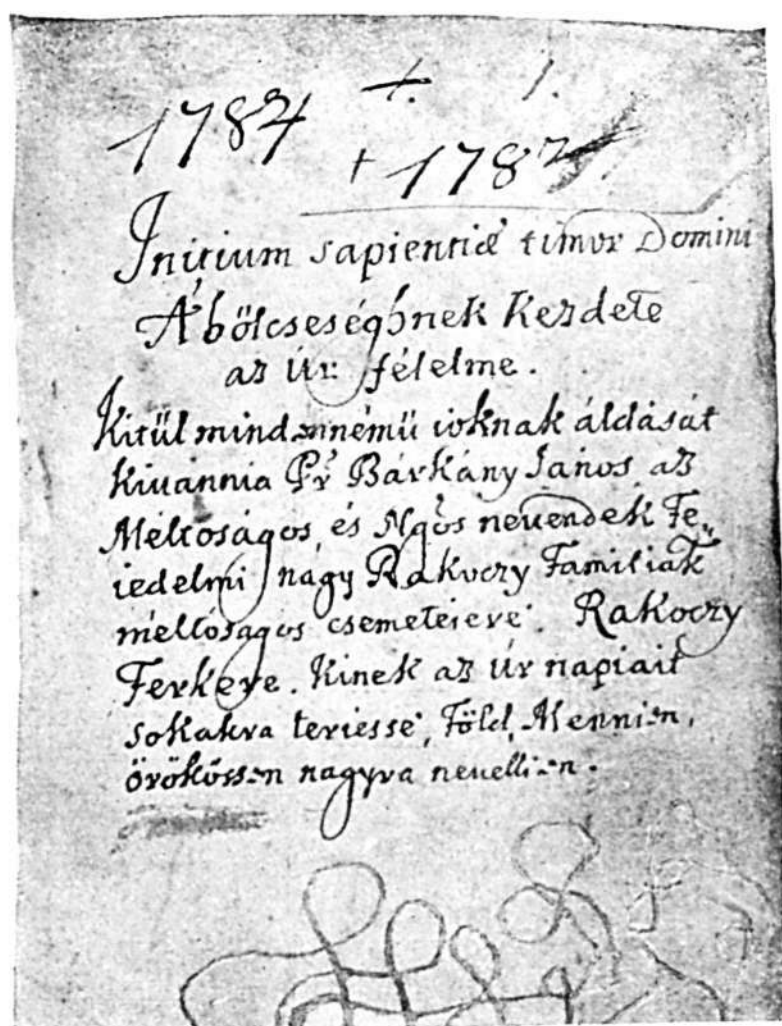 1784 +. 1.
+ 1782
Initium sapientiæ timor Domini
A' bőlcseséghnek kezdete
az Úr félelme.
Kitül mindennémű ioknak áldását
kiuánnia Pr Bárkány János az
Méltoságos, és Ngos neuendék Fe„
iedelmi nagy Rakoczy Familiák
méltoságos csemeteiere. Rakoczy
Ferkere. Kinek az Úr napiait
sokakra teriesse, Föld, Mennien,
örökössen nagyra neuellien.